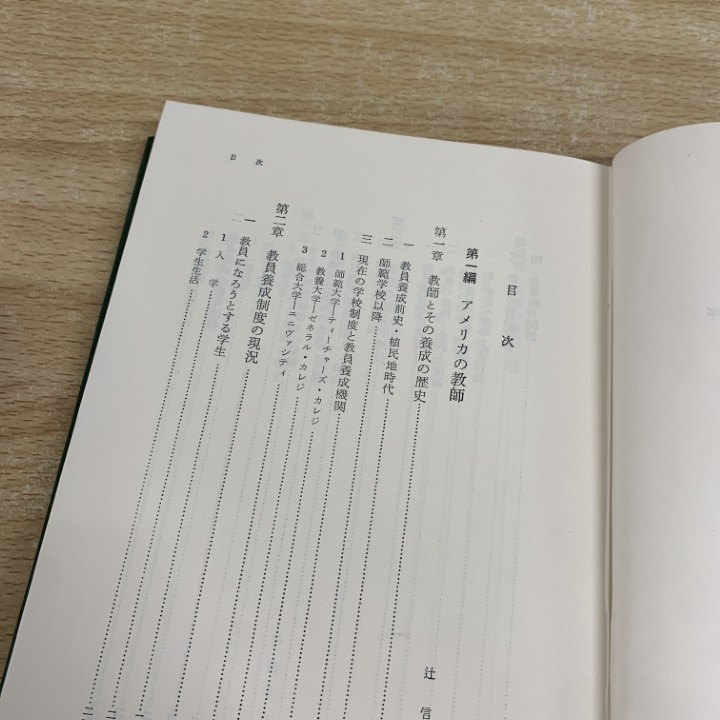 目次
目次
第一編 アメリカの教師
辻 信
第一章 教師とその養成の歴史
一 教員養成前史・植民地時代
二 師範学校以降
三 現在の学校制度と教員養成機関
1 師範大学―ティーチャーズ・カレジ
2 教養大学―ゼネラル・カレジ
3 総合大学―ユニヴァシティ
第二章 教員養成制度の現況
一 教員になろうとする学生
1 入学
2 学生生活